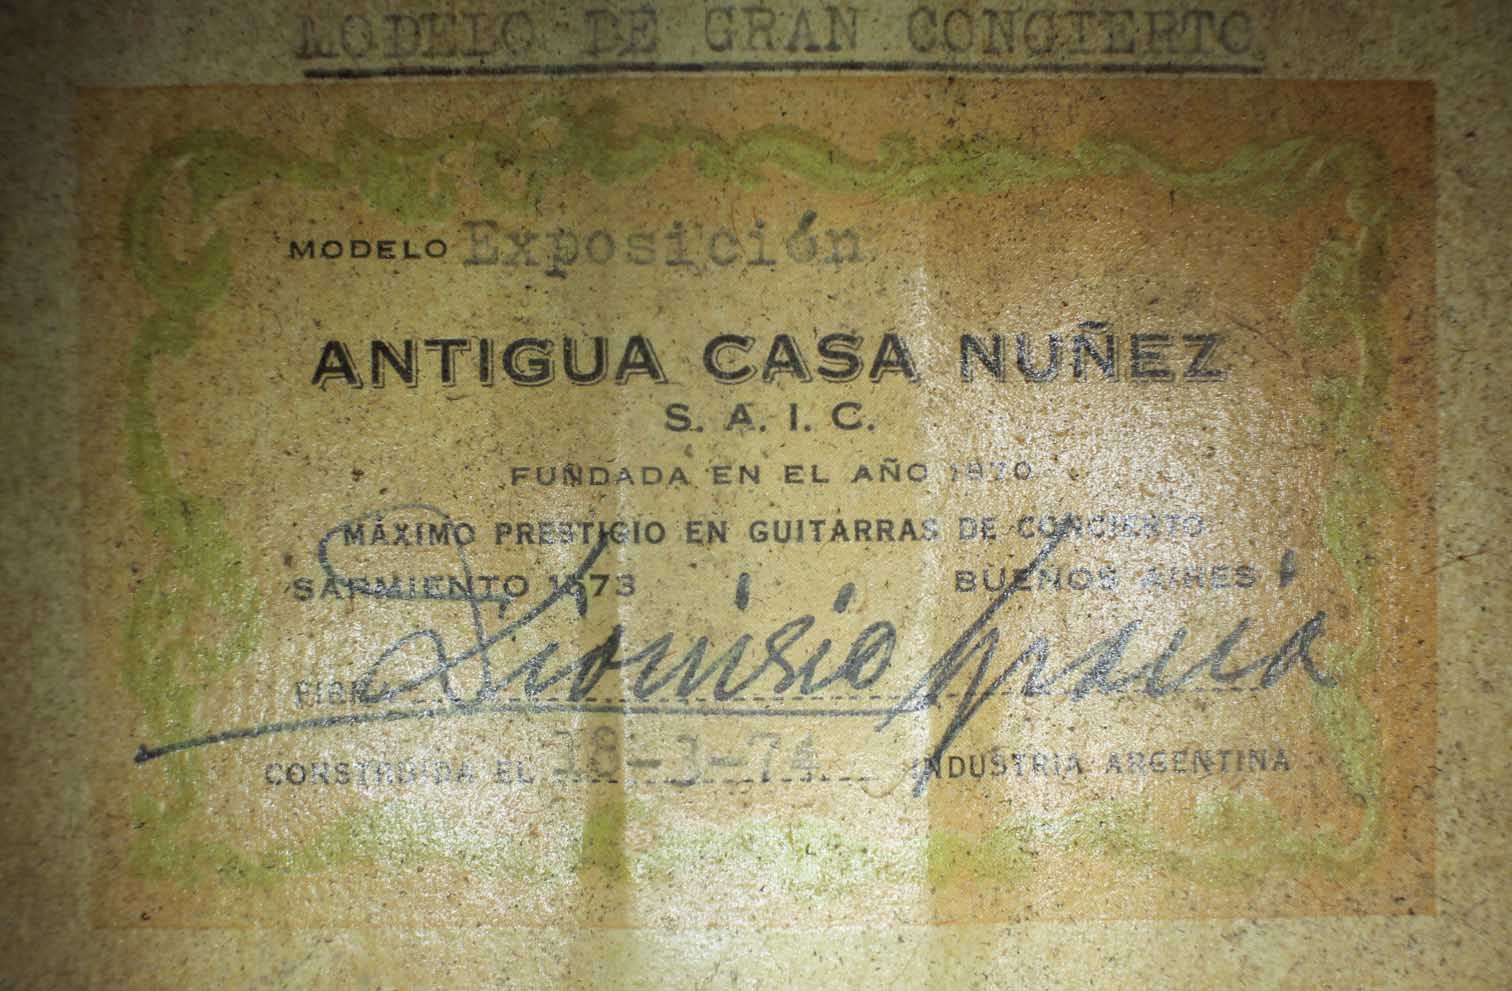 MODELO DE GRAN CONCIERTO
MODELO Exposición
ANTIGUA CASA NUÑEZ
S. A. I. C.
FUNDADA EN EL AÑO 1870
MÁXIMO PRESTIGIO EN GUITARRAS DE CONCIERTO
SARMIENTO 1573 BUENOS AIRES
Dionisio Gracia
CONSTRUIDA EL 18-3-74 INDUSTRIA ARGENTINA